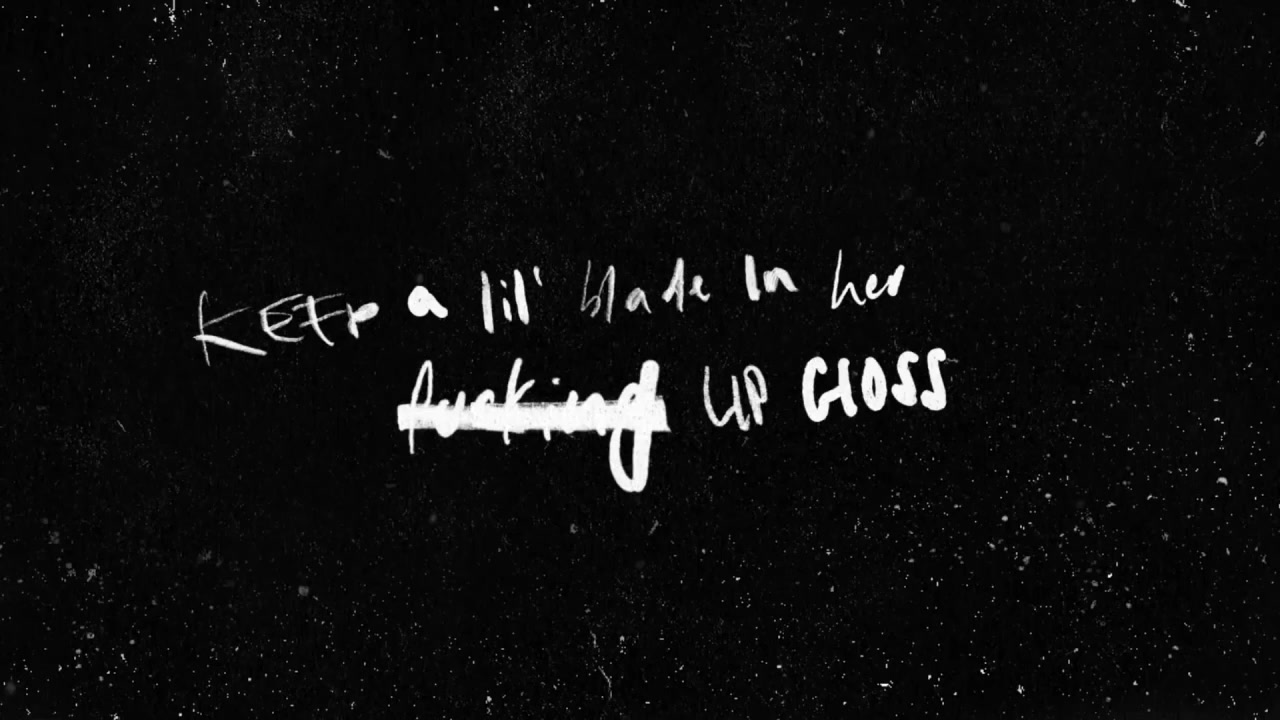 KEEP a lil' blade In her
fucking LIP GlOSS